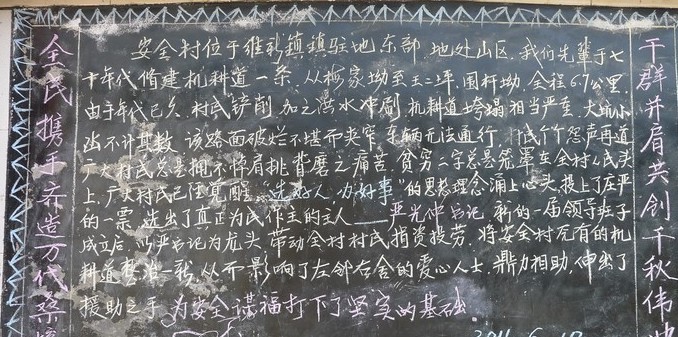 全民携手齐造万代桑
安全村位于维新镇镇驻地东部,地处山区,我们先辈于七
十年代修建机耕道一条,从梅家坳至王二坪,围杆坳,全程6.7公里
由于年代已久,村民铲削,加之洪水冲刷,机耕道垮塌相当严重,大坑小
凼不计其数,该路面破烂不堪而夹窄,车辆无法通行,村民个个怨声再道
广大村民总是拥不掉肩挑背磨之痛苦,贫穷二字总是笼罩在全村人民头
上,广大村民已经觉醒,"选好人,办好事"的思想理念涌上心头,投上了庄严
的一票,选出了真正为民作主的主人——严光仲书记,新的一届领导班子
成立后,以严书记为龙头,带动全村村民捐资投劳,将安全村充有的机
耕道整治一新,从而影响了左邻右舍的爱心人士,鼎力相助,伸出了
援助之手,为安全谋福打下了坚实的基础.
干群并肩共创千秋伟